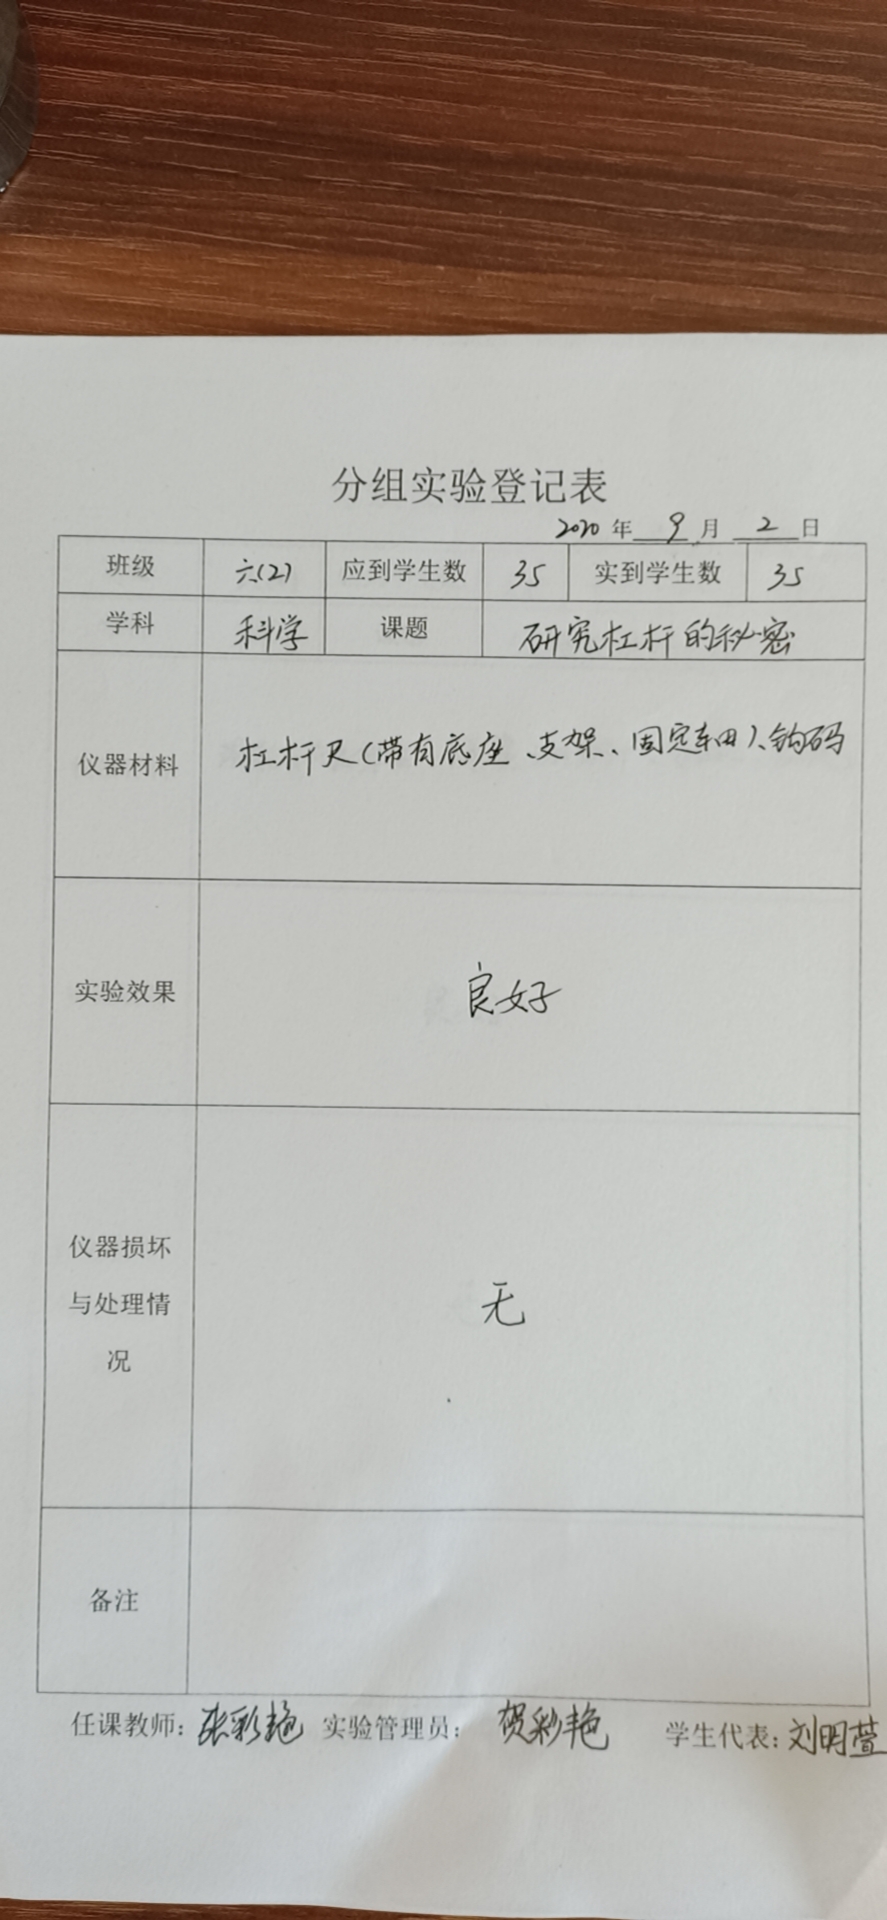 分组实验登记表
2020年 9 月 2 日
班级 六(2) 应到学生数 35 实到学生数 35
学科 科学 课题 研究杠杆的秘密
仪器材料 杠杆尺(带有底座、支架、固定轴)、钩码
实验效果 良好
仪器损坏
与处理情
况
无
备注
任课教师: 张彩艳 实验管理员: 贺彩艳 学生代表: 刘明萱